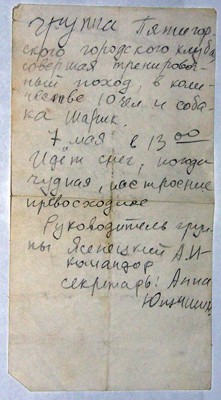 группа Пятигор
ского городского клуба
совершая тренировоч
ный поход, в коли
честве 10 чел и соба
ка Шарик.
7 мая в 13 00
Идёт снег, погода
чудная, настроение
превосходное
Руководитель груп
пы Ясенецкий А.И
командор
секретарь: Анна